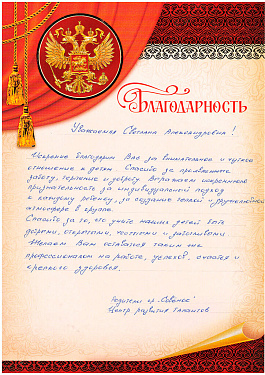 Благодарность
Уважаемая Светлана Александровна!
Искренне благодарим Вас за внимательное и чуткое
отношение к детям. Спасибо за проявленную
заботу, терпение и доброту. Выражаем искреннюю
признательность за индивидуальный подход
к каждому ребенку, за создание теплой и дружелюбной
атмосферы в группе.
Спасибо за то, что учите наших детей быть
добрыми, открытыми, честными и
Желаем Вам оставаться таким же
профессионалом на работе, успехов, счастья и
крепкого здоровья.
Родители гр.
Центр развития Талантов